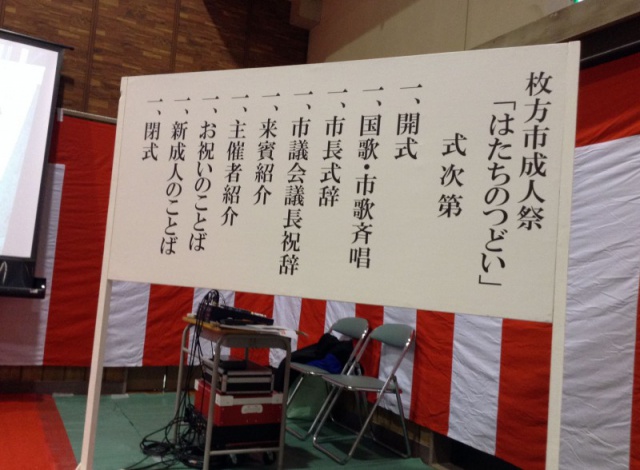 枚方市成人祭
「はたちのつどい」
式次第
一、開式
一、国歌・市歌斉唱
一、市長式辞
一、市議会議長祝辞
一、来賓紹介
一、主催者紹介
一、お祝いのことば
一、新成人のことば
一、閉式